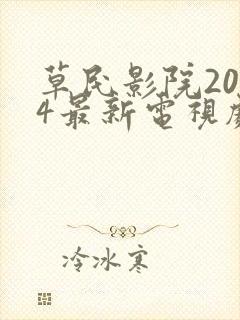 草民影院20
4最新電視
冷冰寒